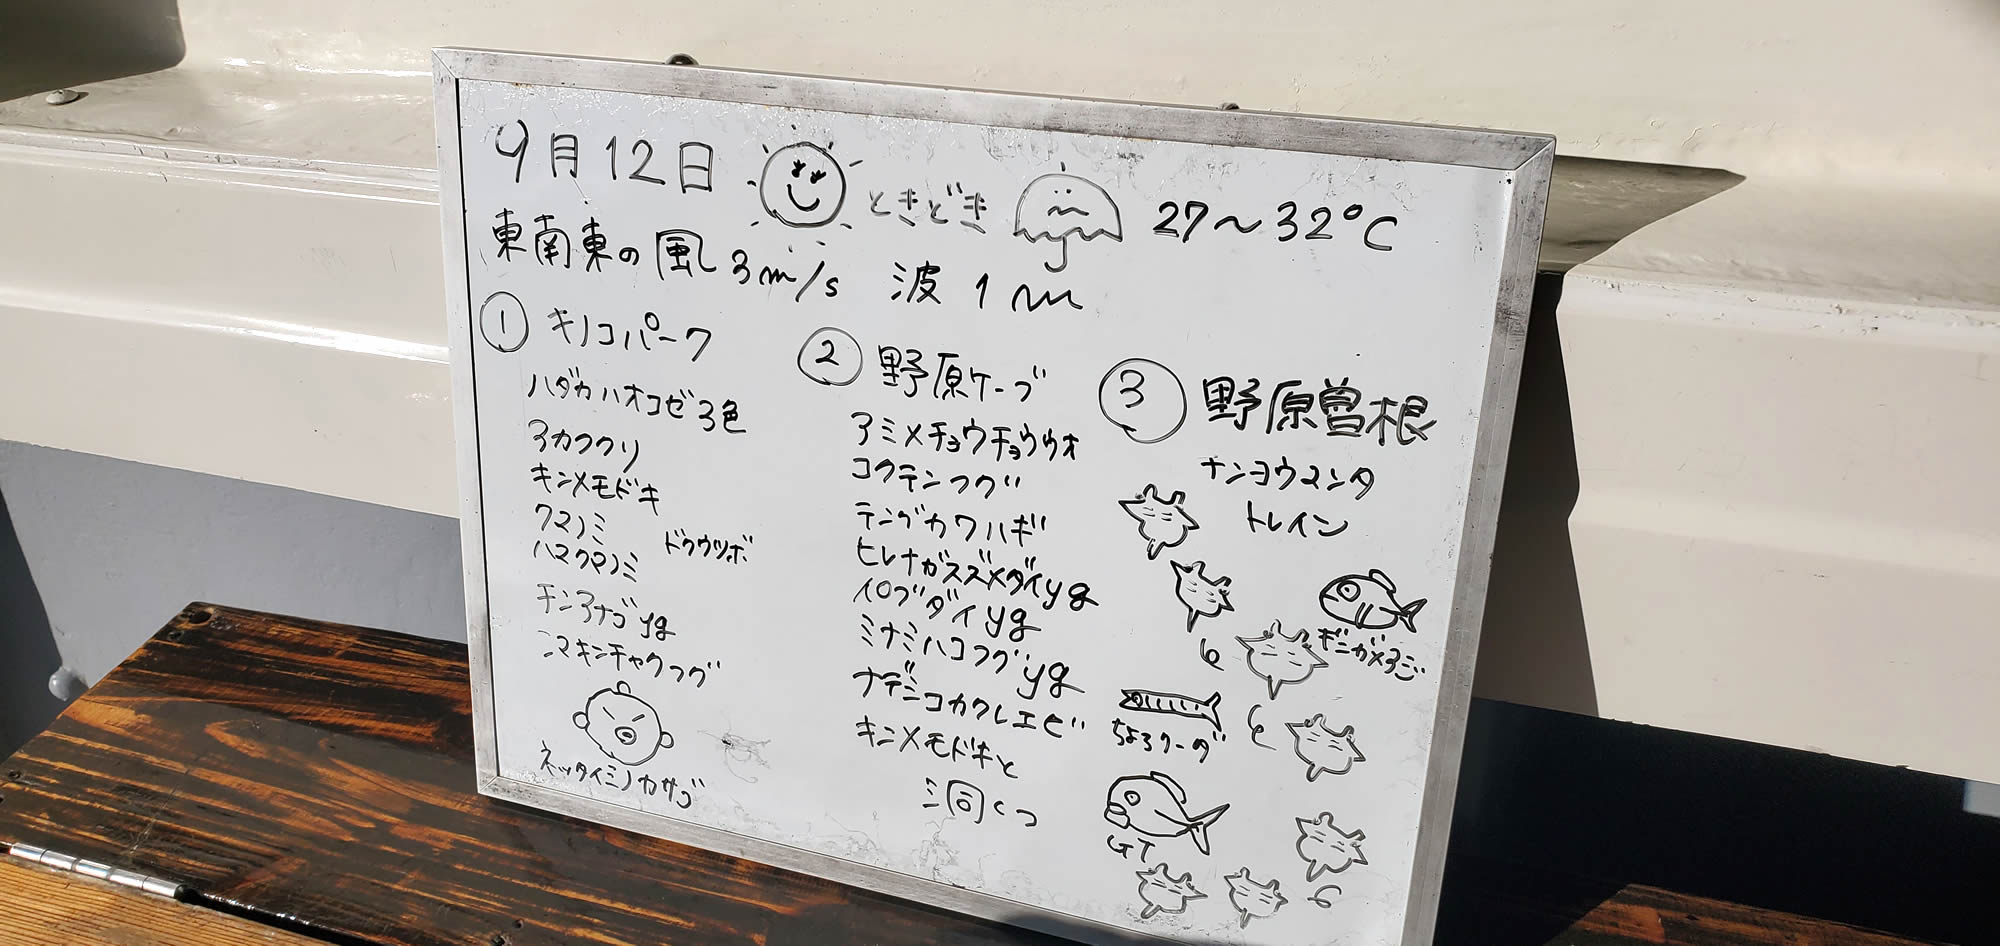 9月12日 ときどき 27〜32℃
東南東の風 3m/s 波 1m
① キノコパーク
ハダカハオコゼ3色
アカククリ
キンメモドキ
クマノミ
ハマクマノミ
ドクウツボ
チンアナゴyg
シマキンチャクフグ
ネッタイミノカサゴ
② 野原ケーブ
アミメチョウチョウウオ
コクテンフグ
テングカワハギ
ヒレナガスズメダイyg
イロブダイyg
ミナミハコフグyg
ナデシコカクレエビ
キンメモドキと
洞くつ
③ 野原曽根
ナンヨウマンタ
トレイン
ギンガメアジ
GT